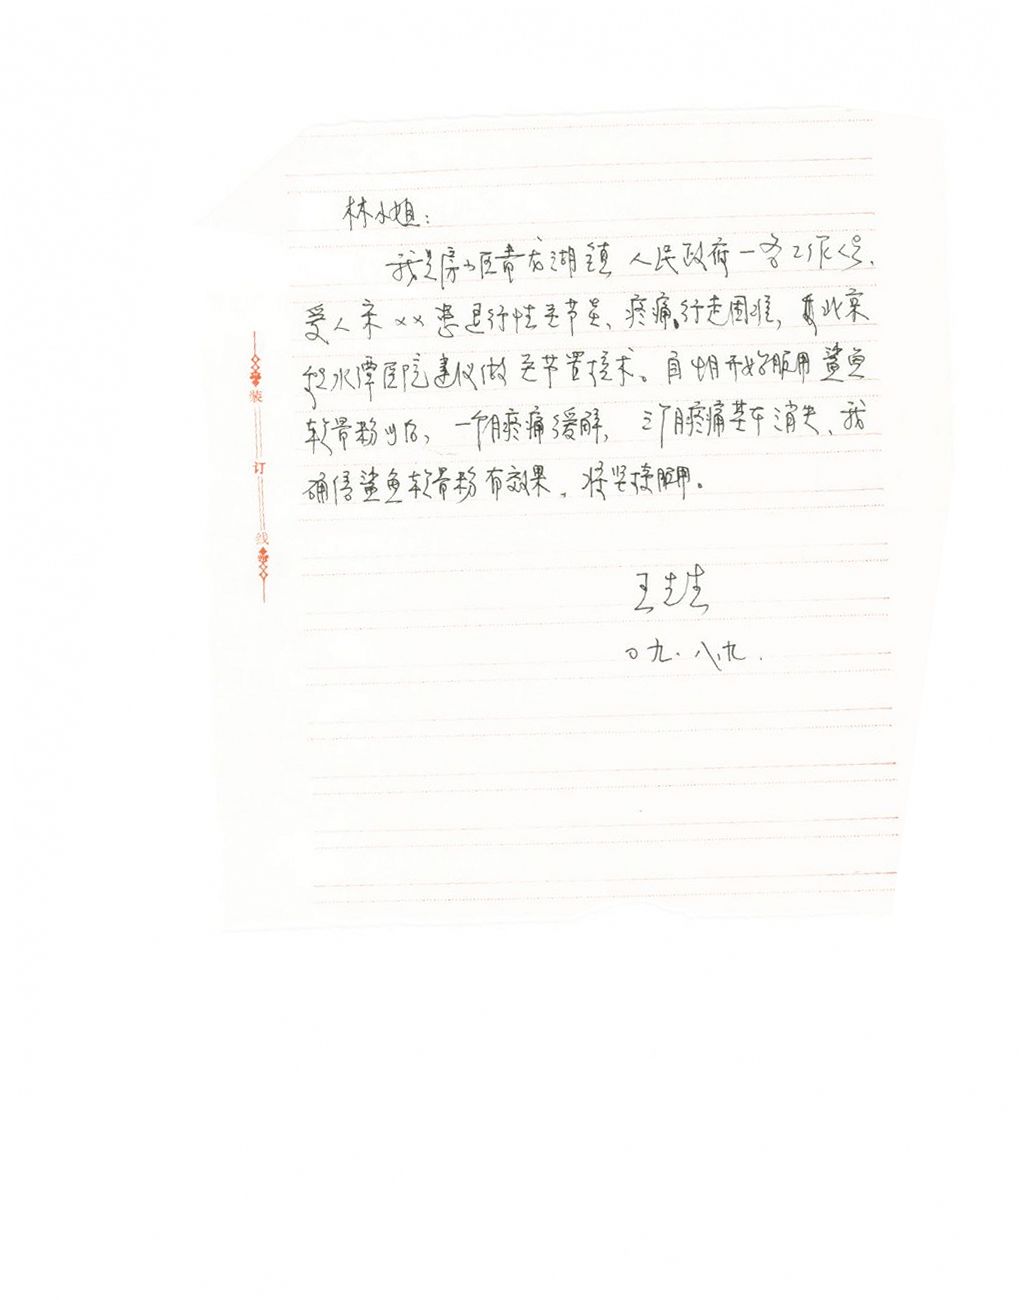 林小姐：
我是房山区青龙湖镇人民政府一名工作人员、
爱人宋××患退行性关节炎、疼痛，行走困难，北京
积水潭医院建议做关节置换术。自4月开始服用鲨鱼
软骨粉以后，一个月疼痛缓解，三个月疼痛基本消失、我
确信鲨鱼软骨粉有效果，将坚持服用。
王先生
〇九.八.九.
装
订
线